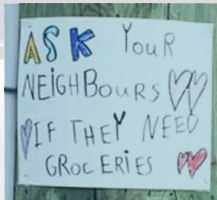 ASK YouR
NEIGHBouRS
IF THEY NEED
GROCERIES